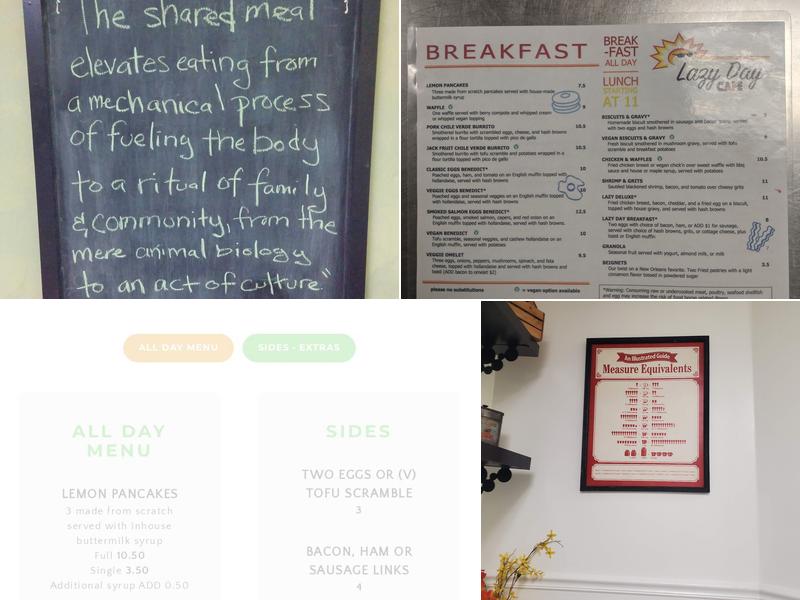 The shared meal
elevates eating from
a mechanical process
of fueling the body
to a ritual of family
& community, from the
mere animal biology
to an act of culture"
BREAKFAST
LEMON PANCAKES 7.5
Three made from scratch pancakes served with house-made
buttermilk syrup
WAFFLE 9
One waffle served with berry compote and whipped cream
or whipped vegan topping
PORK CHILE VERDE BURRITO 10.5
Smothered burrito with scrambled eggs, cheese, and hash browns
wrapped in a flour tortilla topped with pico de gallo
JACK FRUIT CHILE VERDE BURRITO 10.5
Smothered burrito with tofu scramble and potatoes wrapped in a
flour tortilla topped with pico de gallo
CLASSIC EGGS BENEDICT* 10
Poached eggs, ham, and tomato on an English muffin topped with
hollandaise, served with hash browns
VEGGIE EGGS BENEDICT* 10
Poached eggs and seasonal veggies on an English muffin topped
with hollandaise, served with hash browns
SMOKED SALMON EGGS BENEDICT* 12.5
Poached eggs, smoked salmon, capers, and red onion on an
English muffin topped with hollandaise, served with hash browns
VEGAN BENEDICT 10
Tofu scramble, seasonal veggies, and cashew hollandaise on an
English muffin, served with potatoes
VEGGIE OMELET 9.5
Three eggs, onions, peppers, mushrooms, spinach, and feta
cheese, topped with hollandaise and served with hash browns and
toast (ADD bacon to omelet $2)
please no substitutions
= vegan option available
BREAK
-FAST
ALL DAY
LUNCH
STARTING
AT 11
Lazy Day
CAFE
BISCUITS & GRAVY*
Homemade biscuit smothered in sausage and bacon gravy, served
with two eggs and hash browns
VEGAN BISCUITS & GRAVY
Fresh biscuit smothered in mushroom gravy, served with tofu
scramble and breakfast potatoes
CHICKEN & WAFFLES 10.5
Fried chicken breast or vegan chick'n over sweet waffle with bbq
sauce and house or maple syrup, served with potatoes
SHRIMP & GRITS 11
Sautéed blackened shrimp, bacon, and tomato over cheesy grits
LAZY DELUXE* 11
Fried chicken breast, bacon, cheddar, and a fried egg on a biscuit,
topped with house gravy, and served with hash browns
LAZY DAY BREAKFAST* 8
Two eggs with choice of bacon, ham, or ADD $1 for sausage,
served with choice of hash browns, grits, or cottage cheese, plus
toast or English muffin
GRANOLA
Seasonal fruit served with yogurt, almond milk, or milk
BEIGNETS 3.5
Our twist on a New Orleans favorite. Two Fried pastries with a light
cinnamon flavor tossed in powdered sugar
*Warning: Consuming raw or undercooked meat, poultry, seafood shellfish
and egg may increase the risk of food borne
ALL DAY MENU
SIDES - EXTRAS
ALL DAY
MENU
LEMON PANCAKES
3 made from scratch
served with inhouse
buttermilk syrup
Full 10.50
Single 3.50
Additional syrup ADD 0.50
SIDES
TWO EGGS OR (V)
TOFU SCRAMBLE
3
BACON, HAM OR
SAUSAGE LINKS
4
An Illustrated Guide
Measure Equivalents